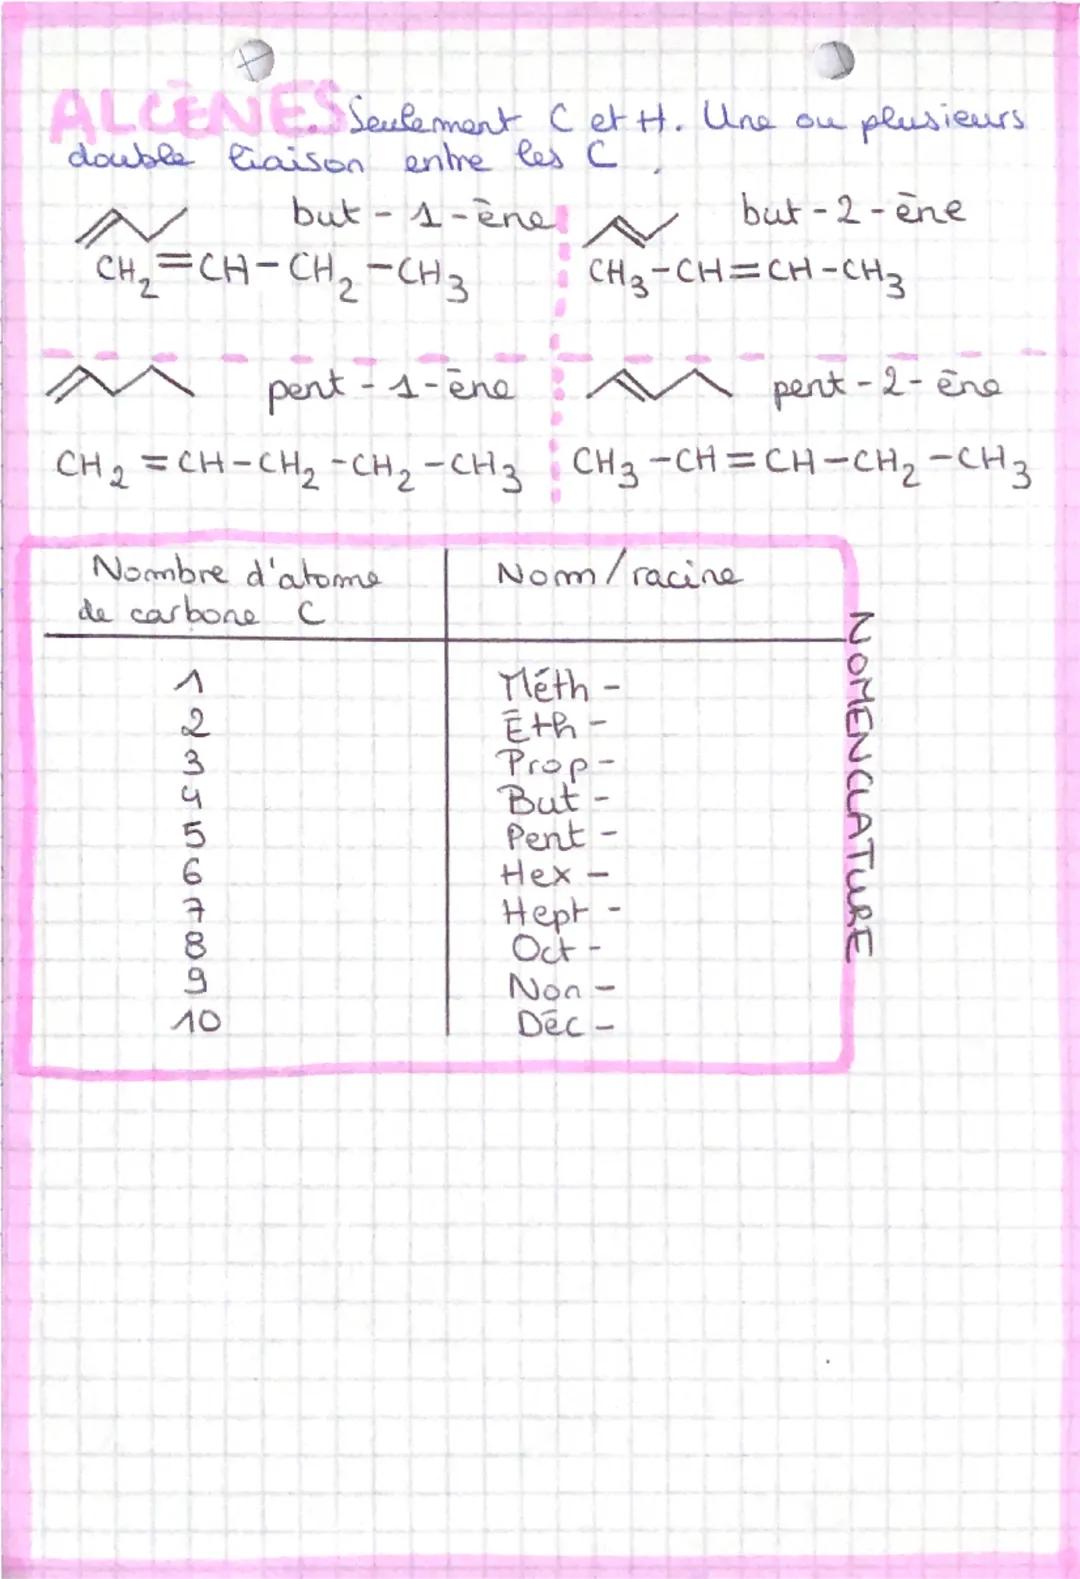 ALCÈNES Seulement C et H. Une ou plusieurs
double liaison entre les C.
but-1-ène
CH₂=CH-CH₂-CH₃
but-2-ène
CH₃-CH=CH-CH₃
pent-1-ène
CH₂=CH-CH₂-CH₂-CH₃
pent-2-ène
CH₃-CH=CH-CH₂-CH₃
NOMENCLATURE
Nombre d'atome
de carbone C
Nom/racine
1 Méth-
2 Éth-
3 Prop-
4 But-
5 Pent-
6 Hex-
7 Hept-
8 Oct-
9 Non-
10 Déc-